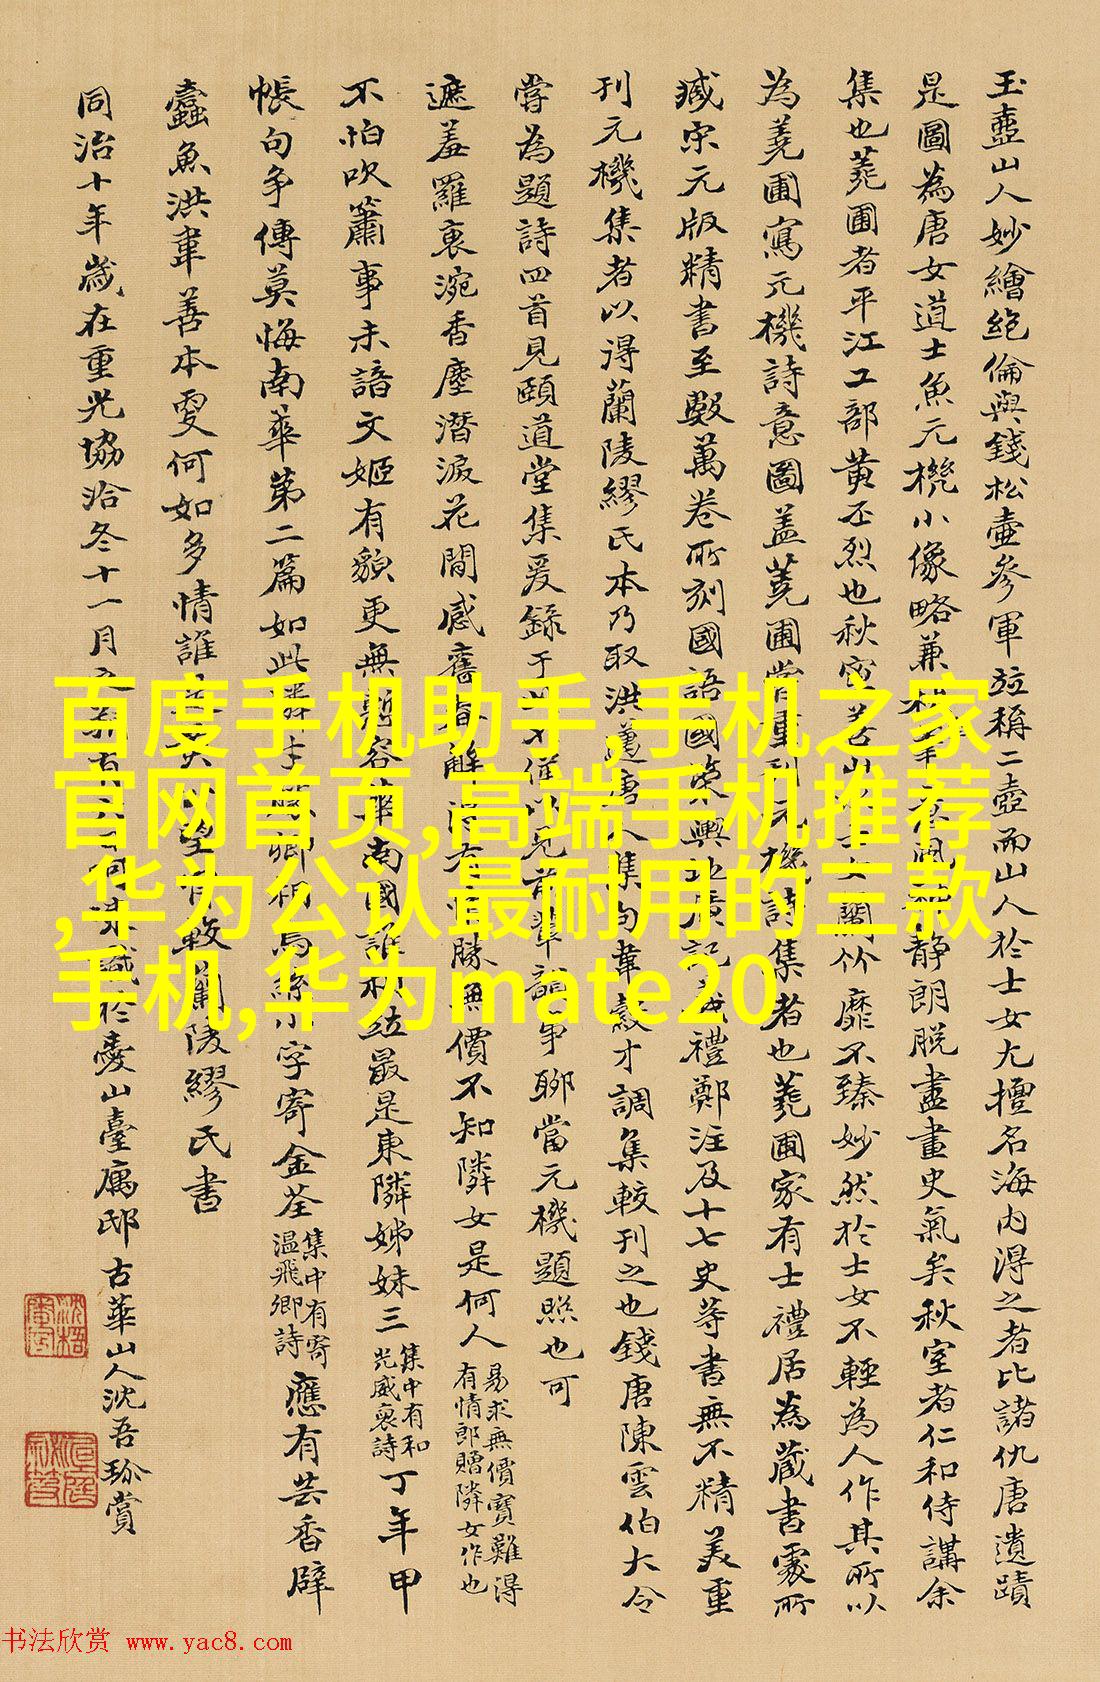 玉壺山人妙繪絕倫與錢松壺參軍並稱二壺而山人於士女尤擅名海内得之者比諸仇唐遺蹟
是圖為唐女道士魚元機小像略兼秋室意閒靜朗脱盡畫史氣矣秋室者仁和侍講余
集也蕘圃者平江工部黄丕烈也秋室善山水士女蘭竹靡不臻妙然於士女不輕為人作其所以
為蕘圃寫元機詩意圖盖蕘圃嘗重刊元機詩集者也蕘圃家有士禮居為蔵書處所
臧宋元版精書至數萬卷所刻國語國策輿地廣記儀禮鄭注及十七史等書無不精美重
刊元機集者以得蘭陵繆氏本乃取洪邁唐人集句韋縠才調集較刊之也錢唐陳雲伯大令
嘗為題詩四首見頤道堂集爰錄于以見前輩韻事聊當元機題照也可
遮羞羅裏涴香塵潛淚花間感舊春解得有情勝無價不知隣女是何人
易求無價寶難得
有情郎贈隣女作也
不怕吹簫事未諳文姬有貌更無慙容華南國誰相並最是東隣姊妹三
集中有和
光威裒詩
丁年甲
帳句争傳莫悔南華第二篇如此隣才勝卿相烏絲小字寄金荃
集中有寄
温飛卿詩
應有芸香辟
蠹魚洪韋善本更何如多情誰較蘭陵繆氏書
同治十年歲在重光協洽冬十一月於臺山臺寓邸古華山人沈吾玠賞
百度手机助手,手机之家
官网首页,高端手机推荐
,华为公认最耐用的三款
手机,华为mate20
书法欣赏 www.yac8.com